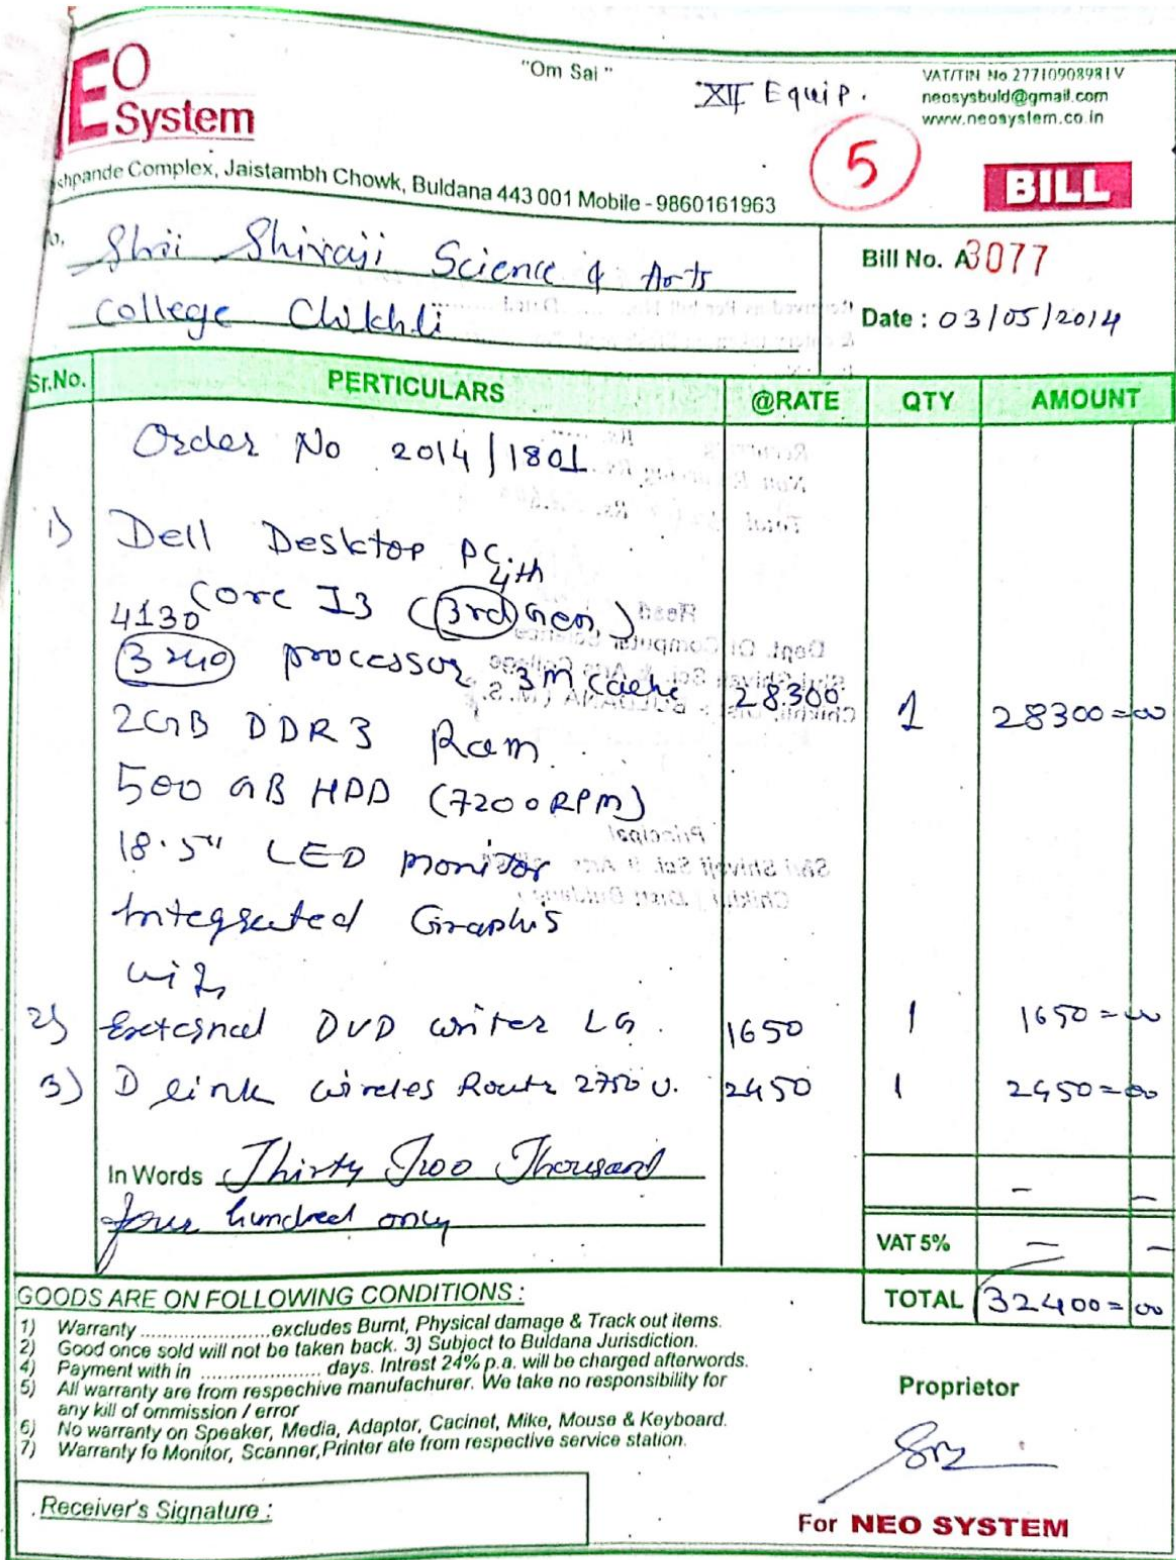 "Om Sai"
XII Equip.
VAT/TIN No 27710908981V
neosysbuld@gmail.com
www.neosystem.co.in
EO
System
5
BILL
shpande Complex, Jaistambh Chowk, Buldana 443 001 Mobile - 9860161963
o. Shri Shivaji Science & Arts
College Chikhli
Bill No. A3077
Date : 03/05/2014
Sr.No. PERTICULARS @RATE QTY AMOUNT
Order No 2014/1801
1) Dell Desktop PC
4th
Core I3 (3rd Gen)
4130
3240 processor 3M Cache 28300 1 28300=00
2GB DDR3 Ram
500 GB HDD (7200RPM)
18.5" LED monitor
Integrated Graphis
2) External DVD writer LG. 1650 1 1650=00
3) D link wireles Route 2750 U. 2450 1 2450=00
In Words Thirty Two Thousand - -
four hundred only
VAT 5% - -
TOTAL 32400=00
GOODS ARE ON FOLLOWING CONDITIONS :
1) Warranty ......................excludes Burnt, Physical damage & Track out items.
2) Good once sold will not be taken back. 3) Subject to Buldana Jurisdiction.
4) Payment with in .................... days. Intrest 24% p.a. will be charged afterwords.
5) All warranty are from respechive manufachurer. We take no responsibility for
any kill of ommission / error
6) No warranty on Speaker, Media, Adaptor, Cacinet, Mike, Mouse & Keyboard.
7) Warranty fo Monitor, Scanner,Printer ate from respective service station.
Proprietor
Receiver's Signature :
For NEO SYSTEM